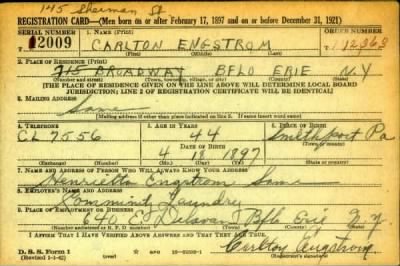 145 Sherman St
REGISTRATION CARD—(Men born on or after February 17, 1897 and on or before December 31, 1921)
SERIAL NUMBER 1. NAME (Print) ORDER NUMBER
U 2009 CARLTON ENGSTROM 12363
(First) (Middle) (Last)
2. PLACE OF RESIDENCE (Print)
715 BROADWAY BFLO ERIE N.Y
(Number and street) (Town, township, village, or city) (County) (State)
[THE PLACE OF RESIDENCE GIVEN ON THE LINE ABOVE WILL DETERMINE LOCAL BOARD
JURISDICTION; LINE 2 OF REGISTRATION CERTIFICATE WILL BE IDENTICAL]
3. MAILING ADDRESS
Same
[Mailing address if other than place indicated on line 2. If same insert word same]
4. TELEPHONE 5. AGE IN YEARS 6. PLACE OF BIRTH
CL 7556 44 Smethport
DATE OF BIRTH (Town or county)
4 18 1897 Pa
(Exchange) (Number) (Mo.) (Day) (Yr.) (State or country)
7. NAME AND ADDRESS OF PERSON WHO WILL ALWAYS KNOW YOUR ADDRESS
Henrietta Engstrom Same
8. EMPLOYER'S NAME AND ADDRESS
Laundry
9. PLACE OF EMPLOYMENT OR BUSINESS
640 E Delavan Bflo Erie N.Y
(Number and street or R. F. D. number) (Town) (County) (State)
I AFFIRM THAT I HAVE VERIFIED ABOVE ANSWERS AND THAT THEY ARE TRUE.
D. S. S. Form 1
(Revised 1-1-42) (over) Carlton Engstrom